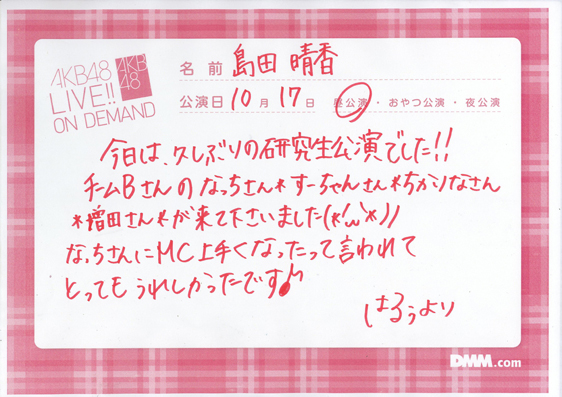 AKB48
LIVE!!
ON DEMAND
AKB
48
名前 島田 晴香
公演日 10月 17日 昼公演・おやつ公演・夜公演
今日は、久しぶりの研究生公演でした!!
チームBさんの なっちさん*すーちゃんさん*ちかりなさん
*増田さん*が来て下さいました(*'ω'*))
なっちさんにMC上手くなったって言われて
とってもうれしかったです♪
はるぅより
DMM.com